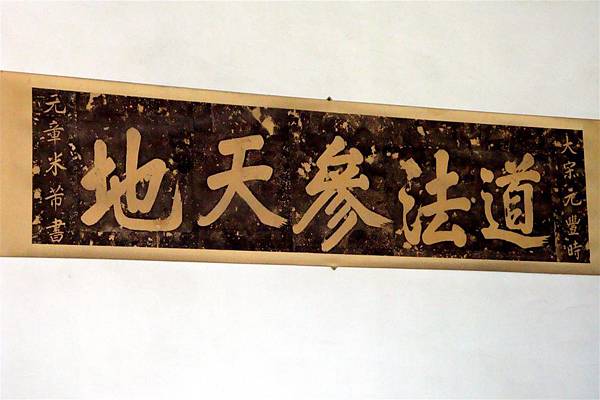 大宗元豐時
道法參天地
元章米芾書